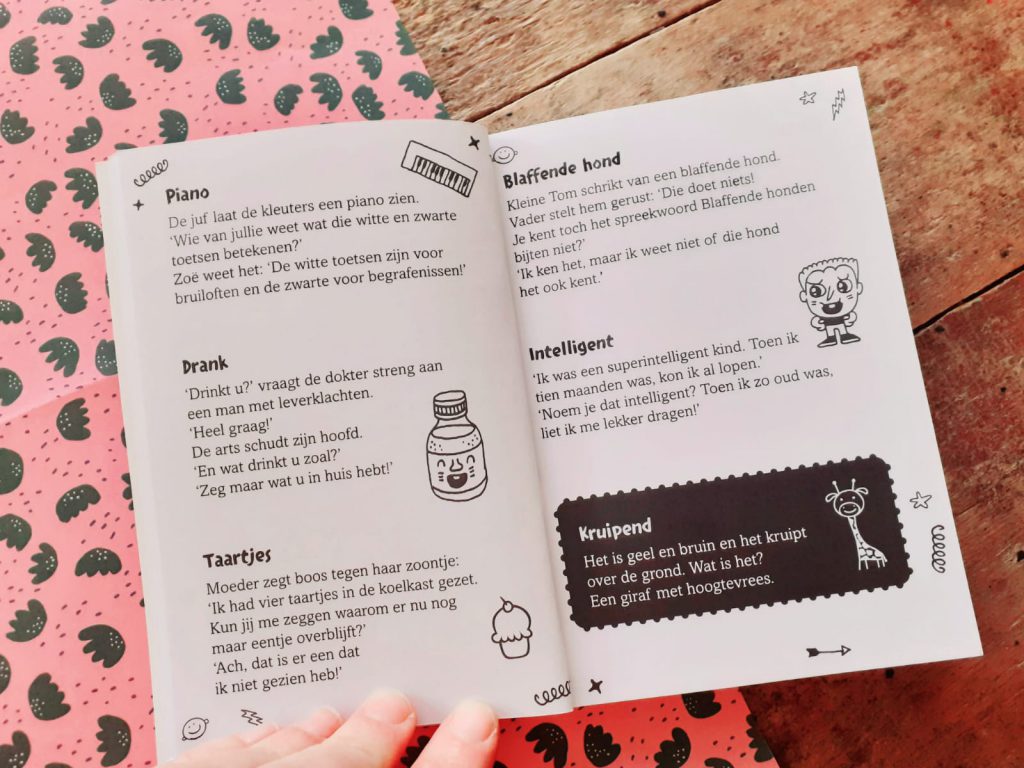 Piano
De juf laat de kleuters een piano zien.
‘Wie van jullie weet wat die witte en zwarte
toetsen betekenen?’
Zoë weet het: ‘De witte toetsen zijn voor
bruiloften en de zwarte voor begrafenissen!’
Drank
‘Drinkt u?’ vraagt de dokter streng aan
een man met leverklachten.
‘Heel graag!’
De arts schudt zijn hoofd.
‘En wat drinkt u zoal?’
‘Zeg maar wat u in huis hebt!’
Taartjes
Moeder zegt boos tegen haar zoontje:
‘Ik had vier taartjes in de koelkast gezet.
Kun jij me zeggen waarom er nu nog
maar eentje overblijft?’
‘Ach, dat is er een dat
ik niet gezien heb!’
Blaffende hond
Kleine Tom schrikt van een blaffende hond.
Vader stelt hem gerust: ‘Die doet niets!
Je kent toch het spreekwoord Blaffende honden
bijten niet?’
‘Ik ken het, maar ik weet niet of die hond
het ook kent.’
Intelligent
‘Ik was een superintelligent kind. Toen ik
tien maanden was, kon ik al lopen.’
‘Noem je dat intelligent? Toen ik zo oud was,
liet ik me lekker dragen!’
Kruipend
Het is geel en bruin en het kruipt
over de grond. Wat is het?
Een giraf met hoogtevrees.